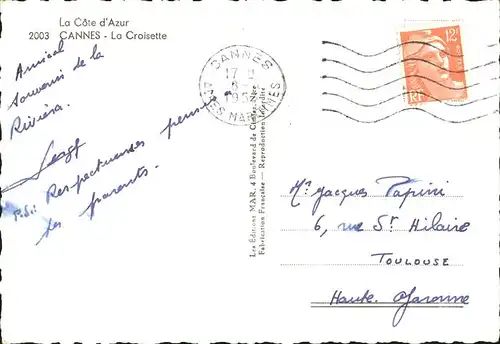 La Côte d'Azur
2003 CANNES - La Croisette
Amical
souvenir de la
Riviéra.
P.S.: Respectueuses pensées
des parents.
Les Éditions MAR, 4 Boulevard de Cimiez, Nice
Fabrication Française - Reproduction Interdite
CANNES
17 H
1952
ALPES MARMES
12F
RF
Mr Jacques Papini
6, rue St Hilaire
TOULOUSE
Haute Garonne